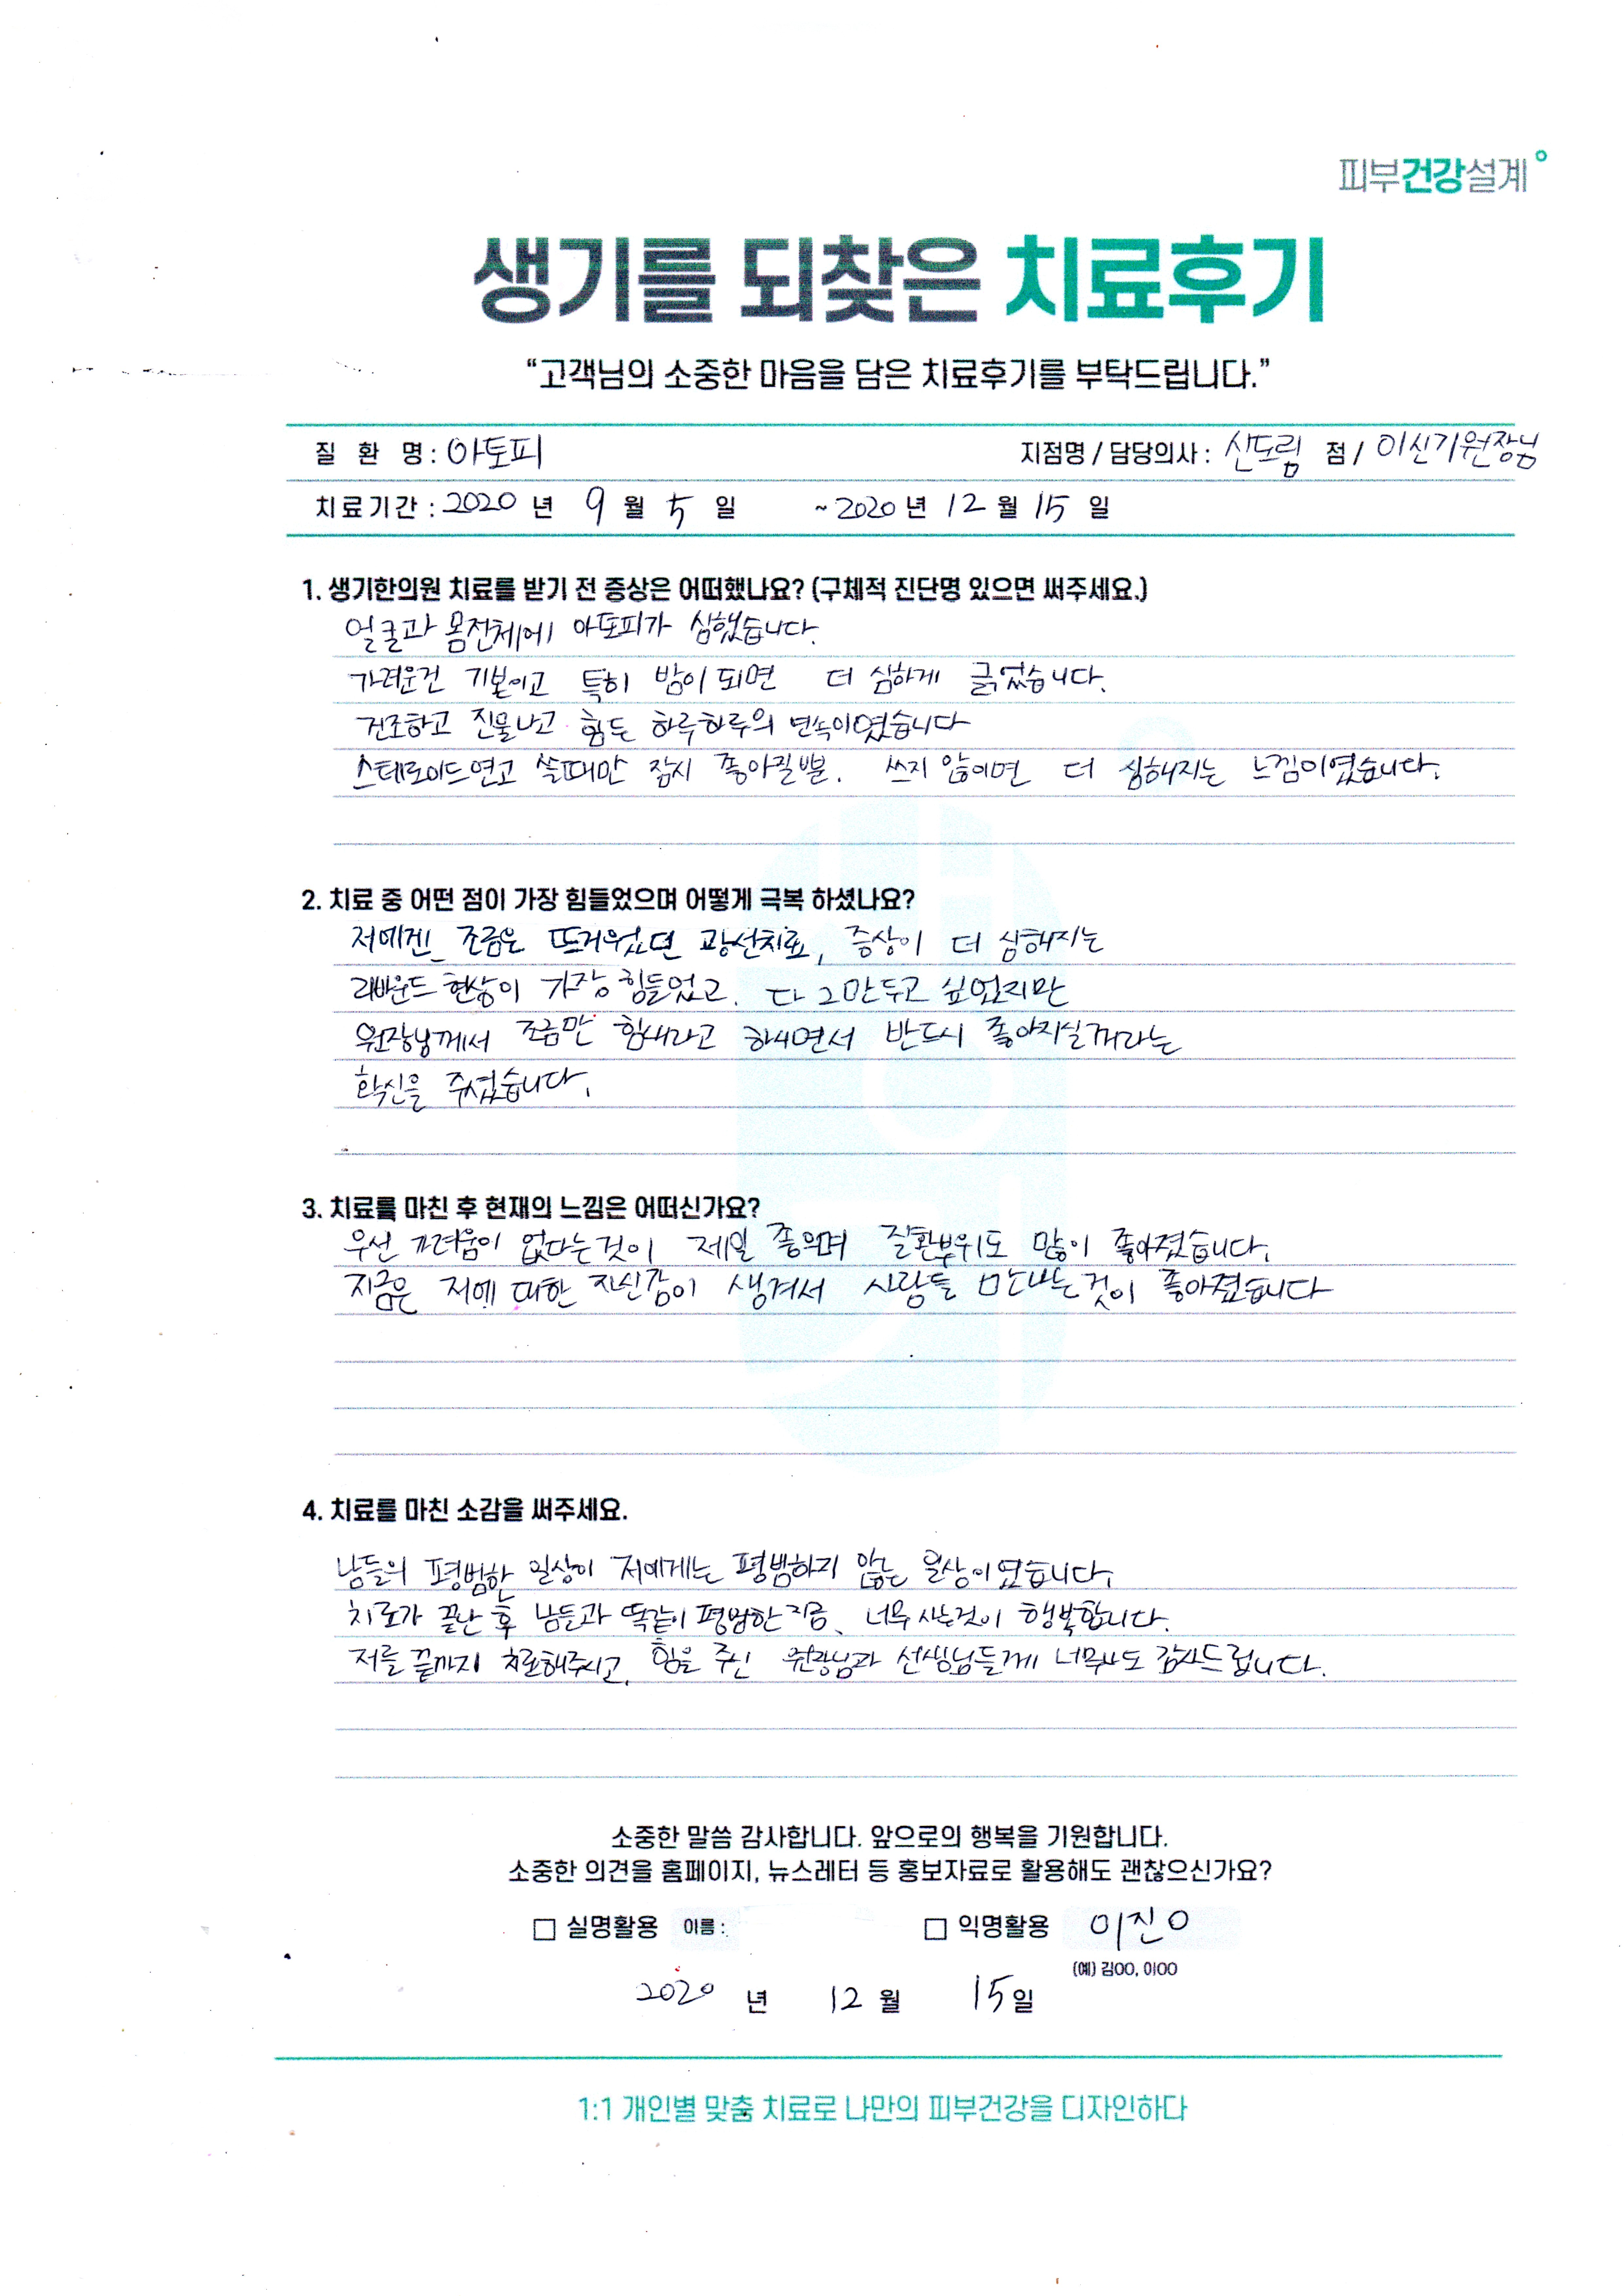 피부건강설계
생기를 되찾은 치료후기
“고객님의 소중한 마음을 담은 치료후기를 부탁드립니다.”
질 환 명 : 아토피 지점명 / 담당의사 : 신도림 점 / 이신기원장님
치료기간 : 2020 년 9 월 5 일 ~ 2020 년 12 월 15 일
1. 생기한의원 치료를 받기 전 증상은 어떠했나요? (구체적 진단명 있으면 써주세요.)
얼굴과 몸전체에 아토피가 심했습니다.
가려운건 기본이고 특히 밤이 되면 더 심하게 긁었습니다.
건조하고 진물나고 힘든 하루하루의 연속이였습니다
스테로이드연고 쓸때만 잠시 좋아질뿐. 쓰지 않으면 더 심해지는 느낌이였습니다.
2. 치료 중 어떤 점이 가장 힘들었으며 어떻게 극복 하셨나요?
저에겐 조금은 뜨거웠던 광선치료, 증상이 더 심해지는
리바운드 현상이 가장 힘들었고. 다 그만두고 싶었지만
원장님께서 조금만 힘내라고 하시면서 반드시 좋아지실꺼라는
확신을 주셨습니다.
3. 치료를 마친 후 현재의 느낌은 어떠신가요?
우선 가려움이 없다는것이 제일 좋으며 질환부위도 많이 좋아졌습니다.
지금은 저에 대한 자신감이 생겨서 사람들 만나는것이 좋아졌습니다
4. 치료를 마친 소감을 써주세요.
남들의 평범한 일상이 저에게는 평범하지 않는 일상이였습니다.
치료가 끝난 후 남들과 똑같이 평범한 지금, 너무 사는것이 행복합니다.
저를 끝까지 치료해주시고, 힘을 주신 원장님과 선생님들께 너무나도 감사드립니다.
소중한 말씀 감사합니다. 앞으로의 행복을 기원합니다.
소중한 의견을 홈페이지, 뉴스레터 등 홍보자료로 활용해도 괜찮으신가요?
□ 실명활용 이름 : □ 익명활용 이진O
(예) 김OO, 이OO
2020 년 12 월 15 일
1:1 개인별 맞춤 치료로 나만의 피부건강을 디자인하다